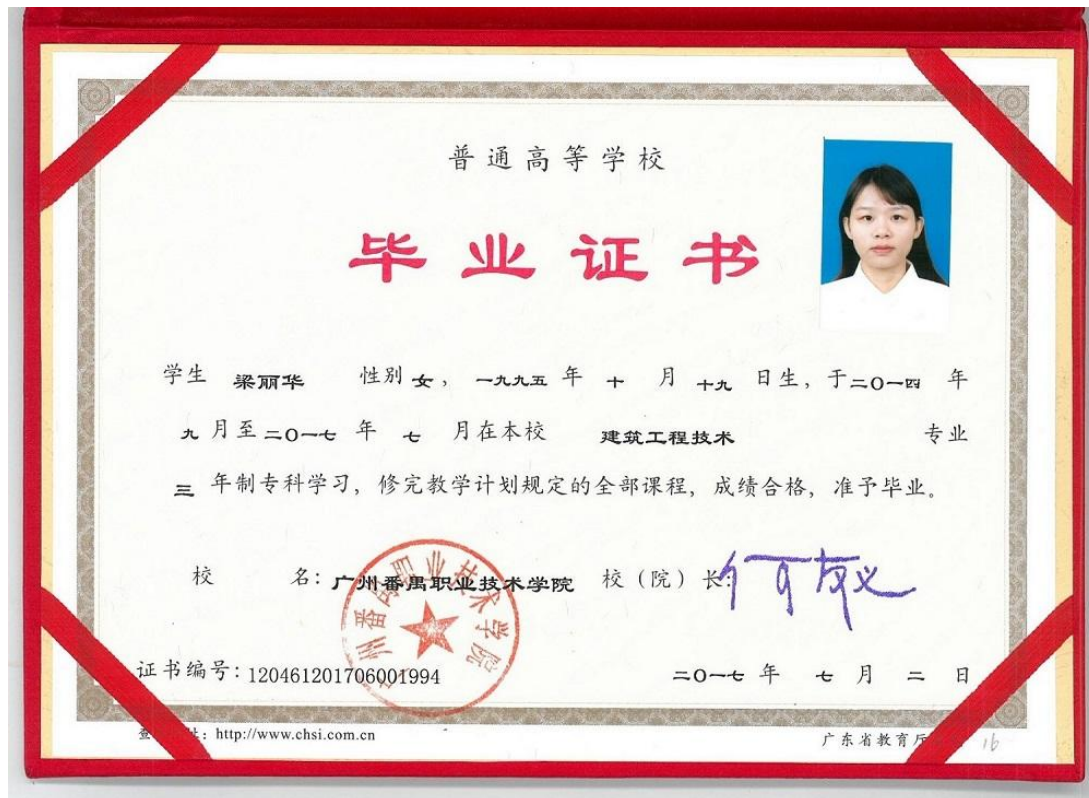 普通高等学校
毕业证书
学生 梁丽华 性别 女，一九九五 年 十 月 十九 日生，于二〇一四 年
九 月至二〇一七 年 七 月在本校 建筑工程技术 专业
三 年制专科学习，修完教学计划规定的全部课程，成绩合格，准予毕业。
校 名：广州番禺职业技术学院 校（院）长：
广州番禺职业技术学院
证书编号：120461201706001994 二〇一七 年 七 月 二 日
http://www.chsi.com.cn 广东省教育厅
16